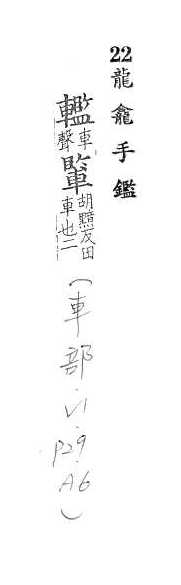 22龍龕手鑑
轞車聲胡黯反田車也二(車部.VI.P29.A6)